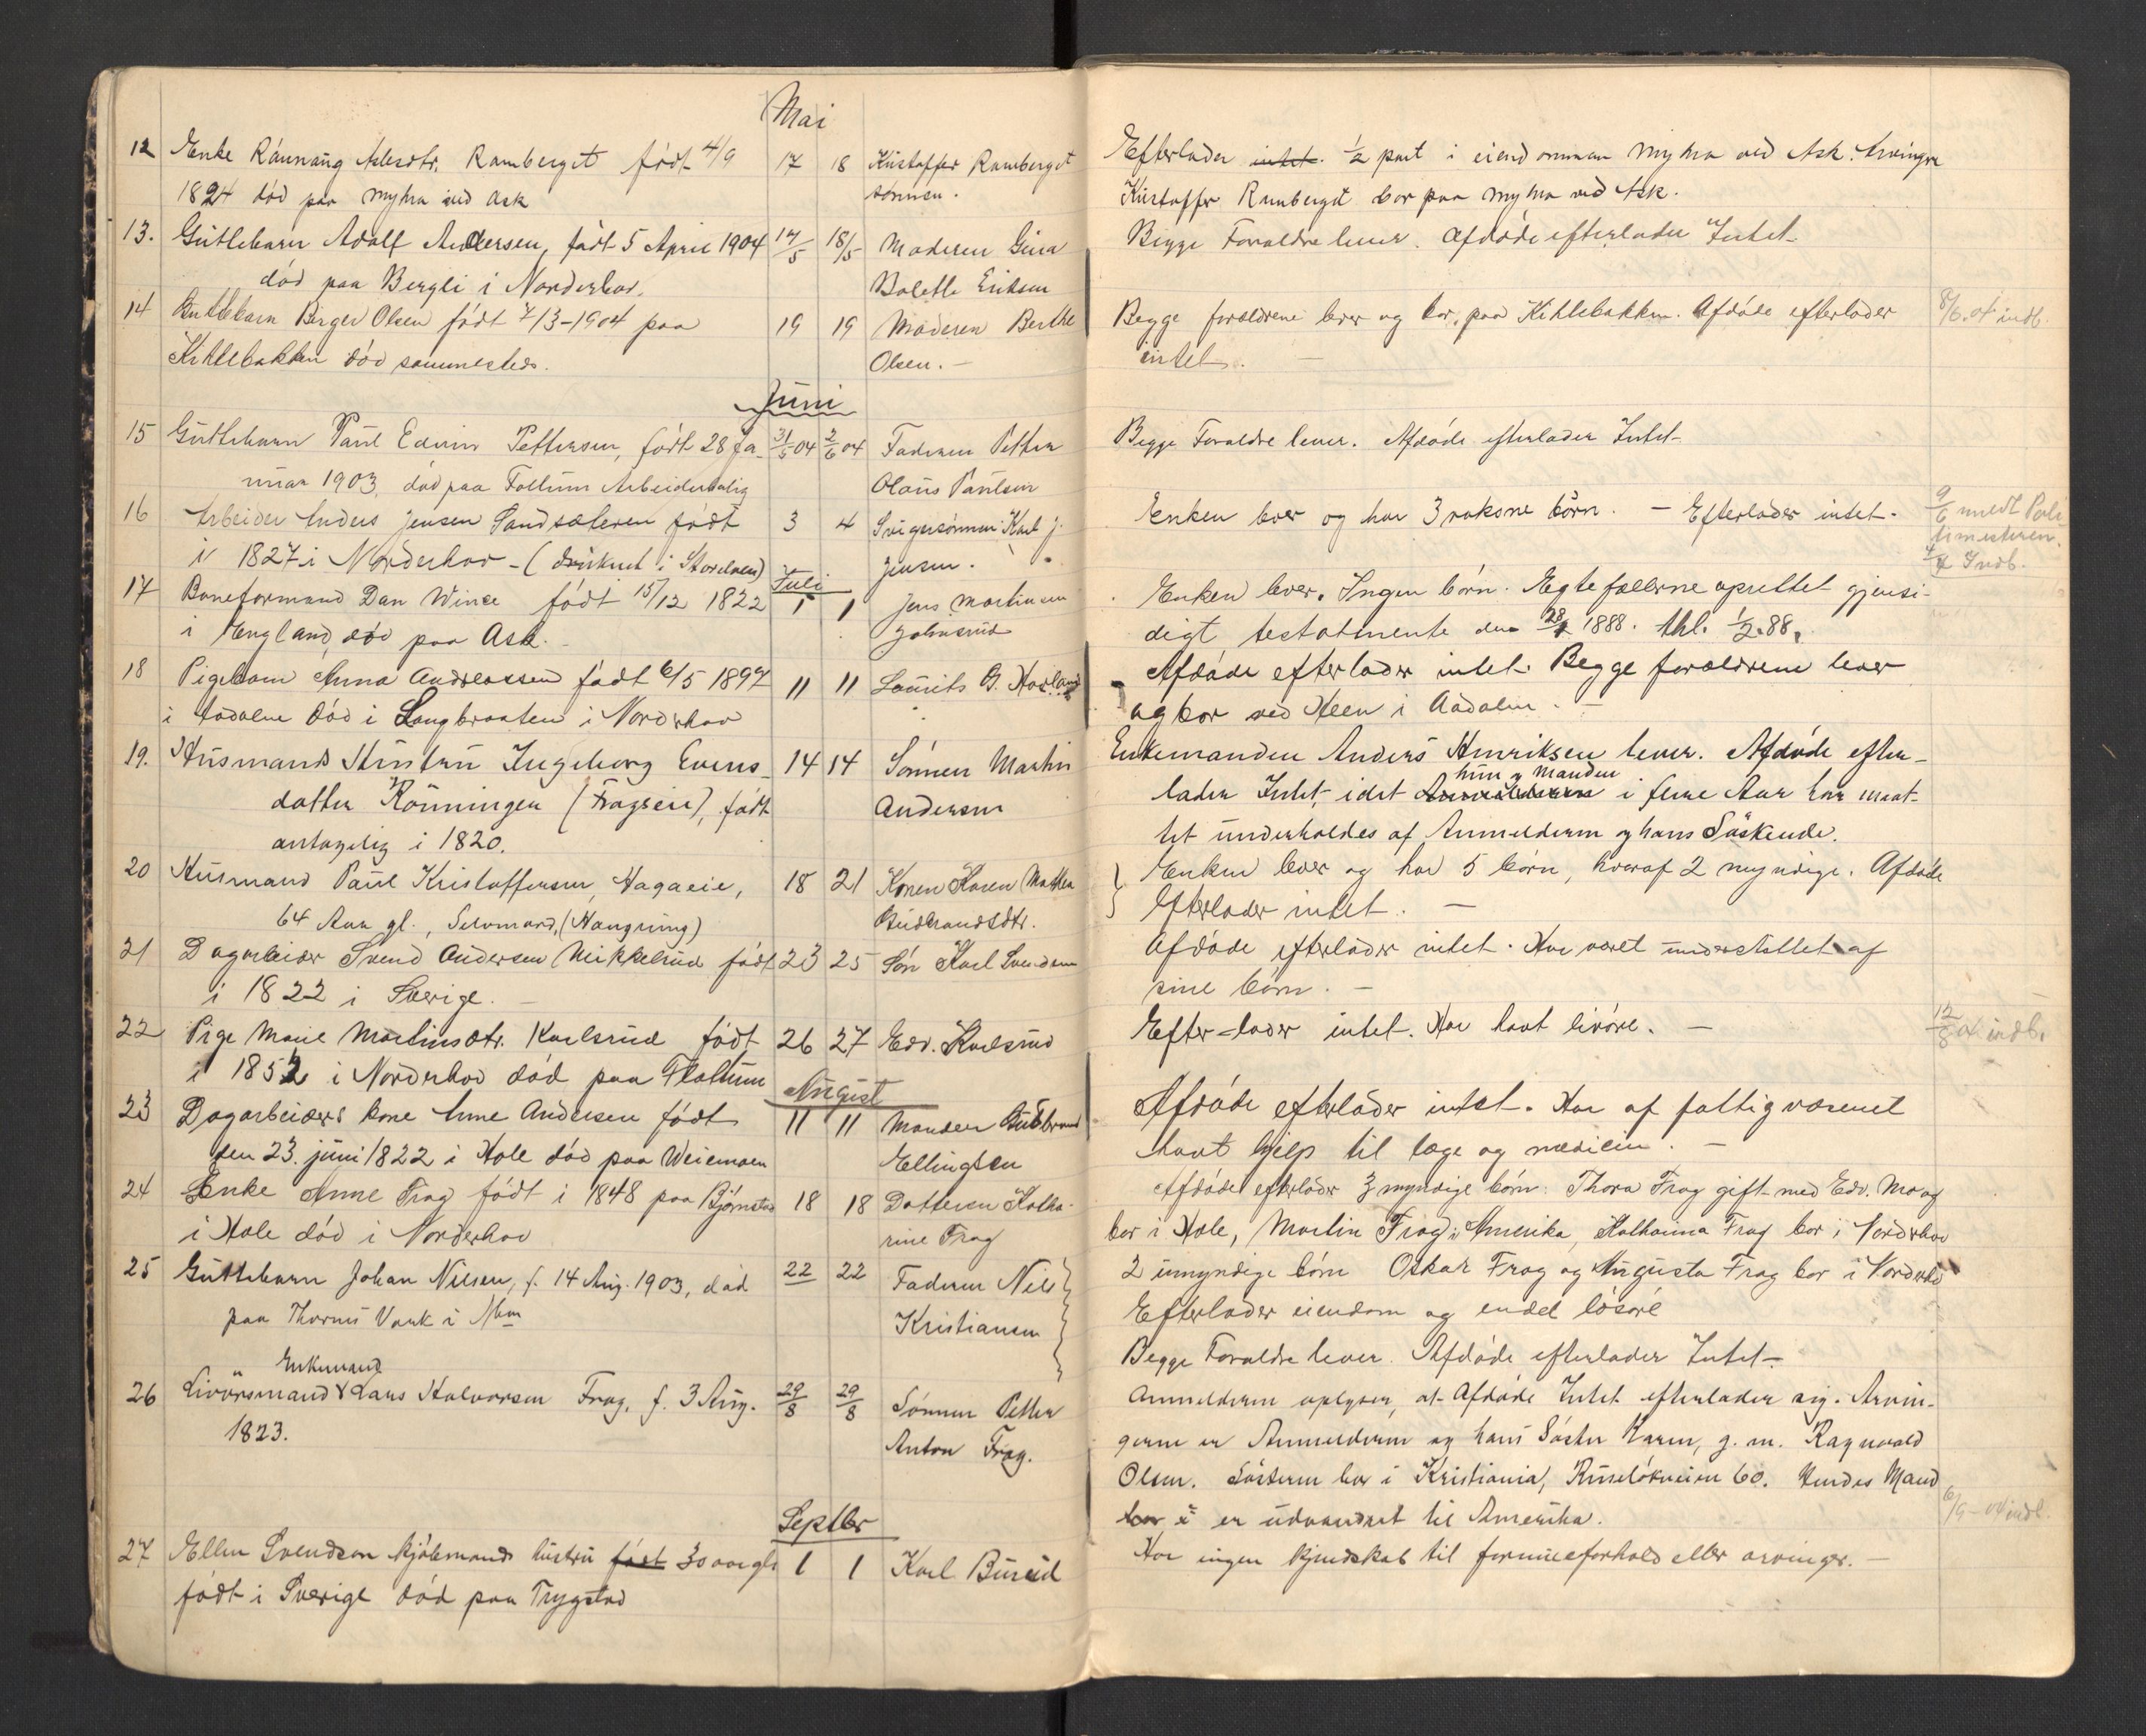 Mai
12 Enke Raunaug Aslesdtr. Ramberget født 4/9 17 18 Kristoffer Ramberget
1824 død paa Myhra ved Ask sønnen.
13. Guttebarn Adolf Andersen, født 5 April 1904 17/5 18/5 Moderen Gina
død paa Bergli i Norderhov. Bolette Eriksen
14 Guttebarn Birger Olsen født 7/3-1904 paa 19 19 Moderen Berthe
Kihlebakken død sammesteds. Olsen.-
Juni
15 Guttebarn Paul Edvin Pettersen, født 28 Ja- 31/5 04 2/6 04 Faderen Petter
nuar 1903, død paa Follum Arbeiderbolig Olaus Paulsen
16 Arbeider Anders Jensen Sandsæteren født 3 4 Svigersønnen Karl J.
i 1827 i Norderhov - (druknet i Storelven) Jensen.
Juli
17 Baneformand Dan Wince født 15/12 1822 1 1 Jens Martinsen
i England, død paa Ask. Johnsrud
18 Pigebarn Anna Andreassen født 6/5 1897 11 11 Laurits G.
i Aadalen død i Langbraaten i Norderhov
19. Husmands Hustru Ingeborg Evens- 14 14 Sønnen Martin
datter Rønningen (Fragseie), født Andersen
antagelig i 1820.
20 Husmand Paul Kristoffersen, Hagaeie, 18 21 Konen Karen Mathea
64 Aar gl., Selvmord, (Hængning) Gudbrandsdtr.
21 Dagarbeider Svend Andersen Mikkelsrud født 23 25 Søn Karl Svendsen
i 1822 i Sverige.
22 Pige Marie Martinsdtr. Karlsrud født 26 27 Edv. Karlsrud
i 1852 i Norderhov død paa Flattum
August
23 Dagarbeiders kone Anne Andersen født 11 11 Manden Gudbrand
den 23. juni 1822 i Hole død paa Veiemoen Ellingsen
24 Enke Anne Frog født i 1848 paa Bjørnstad 18 18 Datteren Katha-
i Hole død i Norderhov rine Frog
25 Guttebarn Johan Nilsen, f. 14 Aug. 1903, død 22 22 Faderen Nils
paa Thornes Vark i Kristiansen
Enkemand
26 Livørsmand Lars Halvorsen Frog, f. 3 Aug. 29/8 29/8 Sønnen Petter
1823. Anton Frog.
Septbr
27 Ellen Svendsen kjøbmands hustru født 30 aar gl. 1 1 Karl Burud
født i Sverige død paa Trygstad
Efterlader intet. 1/2 part i eiendommen Myhra ved Ask. Arvingen
Kristoffer Ramberget bor paa Myhra ved Ask.
Begge Forældre lever. Afdøde efterlader Intet
Begge forældrene lever og bor paa Kihlebakken. Afdøde efterlader 8/6.04 indb.
intet.
Begge Forældre lever. Afdøde efterlader Intet
Enken lever og har 3 voksne børn. - Efterlader intet. 9/6 meldt Poli-
timesteren.
Indb.
Enken lever. Ingen børn. Egtefællerne oprettet gjensi-
digt testatmente den 28/1 1888. thl. 1/2.88.
Afdøde efterlader intet. Begge forældrene lever
og bor ved Heen i Aadalen.
Enkemanden Anders Henriksen lever. Afdøde efter-
hun og Manden
lader Intet, idet Anmelderen i flere Aar har maat-
tet underholdes af Anmelderen og hans Søskende.
Enken lever og har 5 børn, hvoraf 2 myndige. Afdøde
Efterlader intet.
Afdøde efterlader intet. Har været understøttet af
sine børn.
Efter-lader intet. Har havt livøre. 12/8 04 indb.
Afdøde efterlader intet. Har af fattigvæsenet
havt hjelp til læge og medicin.
Afdøde efterlader 3 myndige børn: Thora Frog gift med Edv. Mo og
bor i Hole, Martin Frog i Amerika, Katharina Frog bor i Norderhov
2 umyndige børn Oskar Frog og Augusta Frog bor i Norderho
Efterlader eiendom og endel løsøre
Begge Forældre lever. Afdøde efterlader Intet
Anmelderen oplyser, at Afdøde Intet efterlader sig. Arvin-
gerne er Anmelderen og hans Søster Karen, g. m. Ragnvald
Olsen. Søsteren bor i Kristiania, Ruseløkveien 60. Hendes Mand
bor i er udvandret til Amerika. 6/9-04 indb.
Har ingen kjendskab til formuesforhold eller arvinger.